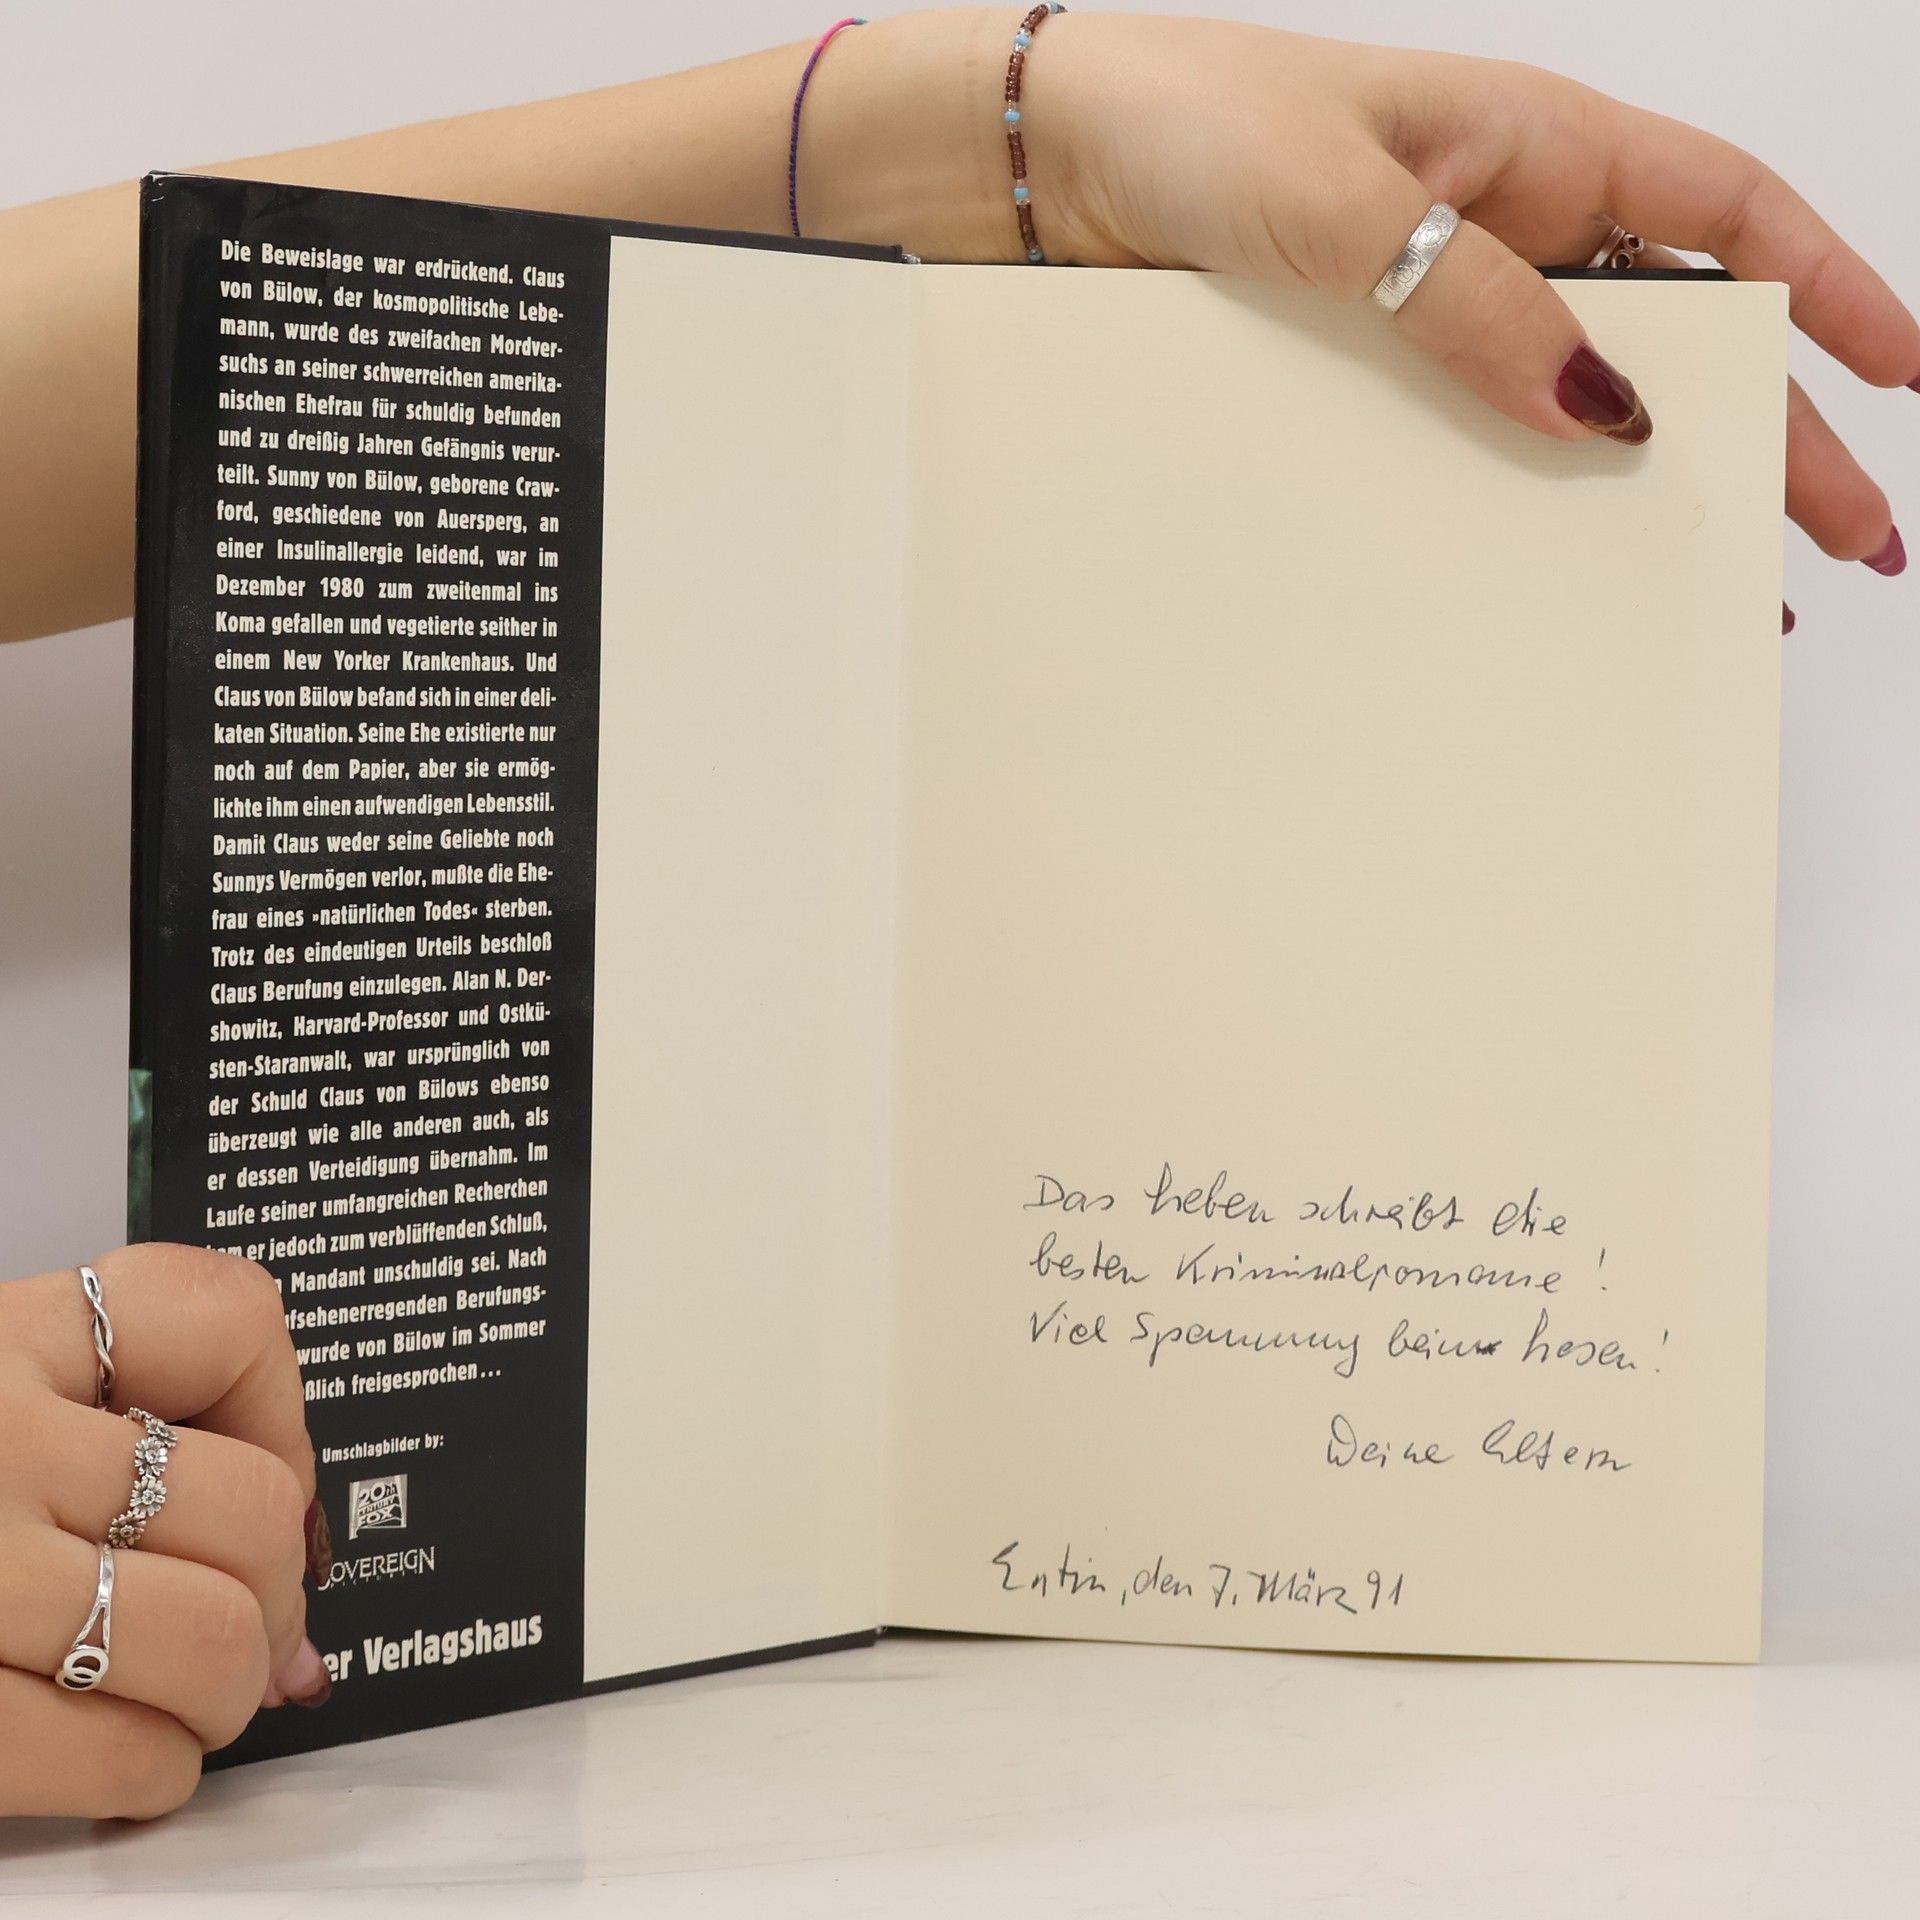 Die Beweislage war erdrückend. Claus
von Bülow, der kosmopolitische Lebe-
mann, wurde des zweifachen Mordver-
suchs an seiner schwerreichen amerika-
nischen Ehefrau für schuldig befunden
und zu dreißig Jahren Gefängnis verur-
teilt. Sunny von Bülow, geborene Craw-
ford, geschiedene von Auersperg, an
einer Insulinallergie leidend, war im
Dezember 1980 zum zweitenmal ins
Koma gefallen und vegetierte seither in
einem New Yorker Krankenhaus. Und
Claus von Bülow befand sich in einer deli-
katen Situation. Seine Ehe existierte nur
noch auf dem Papier, aber sie ermög-
lichte ihm einen aufwendigen Lebensstil.
Damit Claus weder seine Geliebte noch
Sunnys Vermögen verlor, mußte die Ehe-
frau eines »natürlichen Todes« sterben.
Trotz des eindeutigen Urteils beschloß
Claus Berufung einzulegen. Alan N. Der-
showitz, Harvard-Professor und Ostkü-
sten-Staranwalt, war ursprünglich von
der Schuld Claus von Bülows ebenso
überzeugt wie alle anderen auch, als
er dessen Verteidigung übernahm. Im
Laufe seiner umfangreichen Recherchen
er jedoch zum verblüffenden Schluß,
Mandant unschuldig sei. Nach
fsehenerregenden Berufungs-
wurde von Bülow im Sommer
ßlich freigesprochen...
Umschlagbilder by:
20th
CENTURY
FOX
SOVEREIGN
PICTURES
er Verlagshaus
Das Leben schreibt die
besten Kriminalromane!
Viel Spannung beim Lesen!
Deine Eltern
Eutin, den 7. März 91